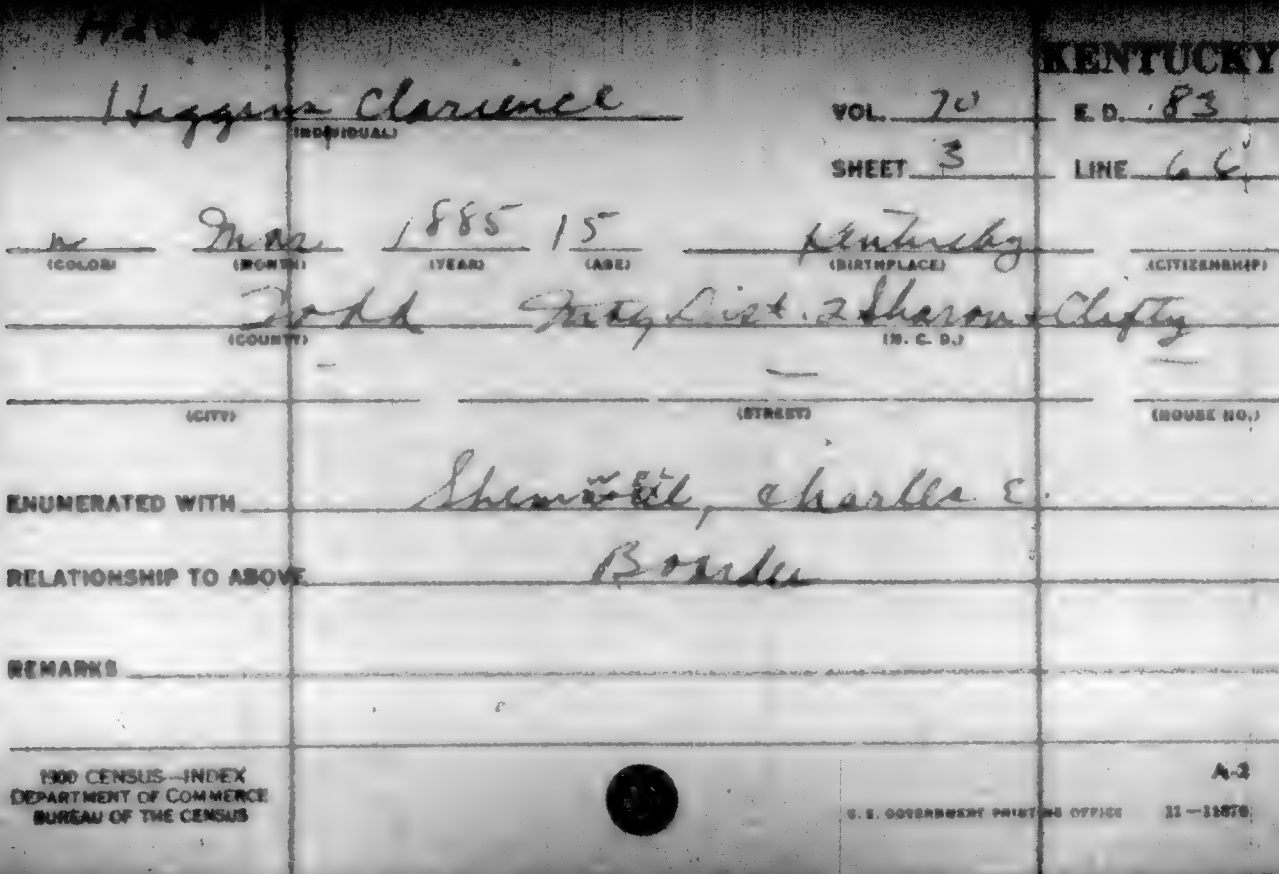 KENTUCKY
Higgins Clarience VOL. 70 E. D. 83
(INDIVIDUAL)
SHEET 3 LINE 66
w Mar 1885 15 Kentucky
(COLOR) (MONTH) (YEAR) (AGE) (BIRTHPLACE) (CITIZENSHIP)
Todd Dist. 2 Sharon & Clifty
(COUNTY) (M. C. D.)
— — —
(CITY) (STREET) (HOUSE NO.)
ENUMERATED WITH Charles E.
RELATIONSHIP TO ABOVE Boarder
REMARKS
1900 CENSUS—INDEX
DEPARTMENT OF COMMERCE
BUREAU OF THE CENSUS
A-2
U. S. GOVERNMENT PRINTING OFFICE 11—11870